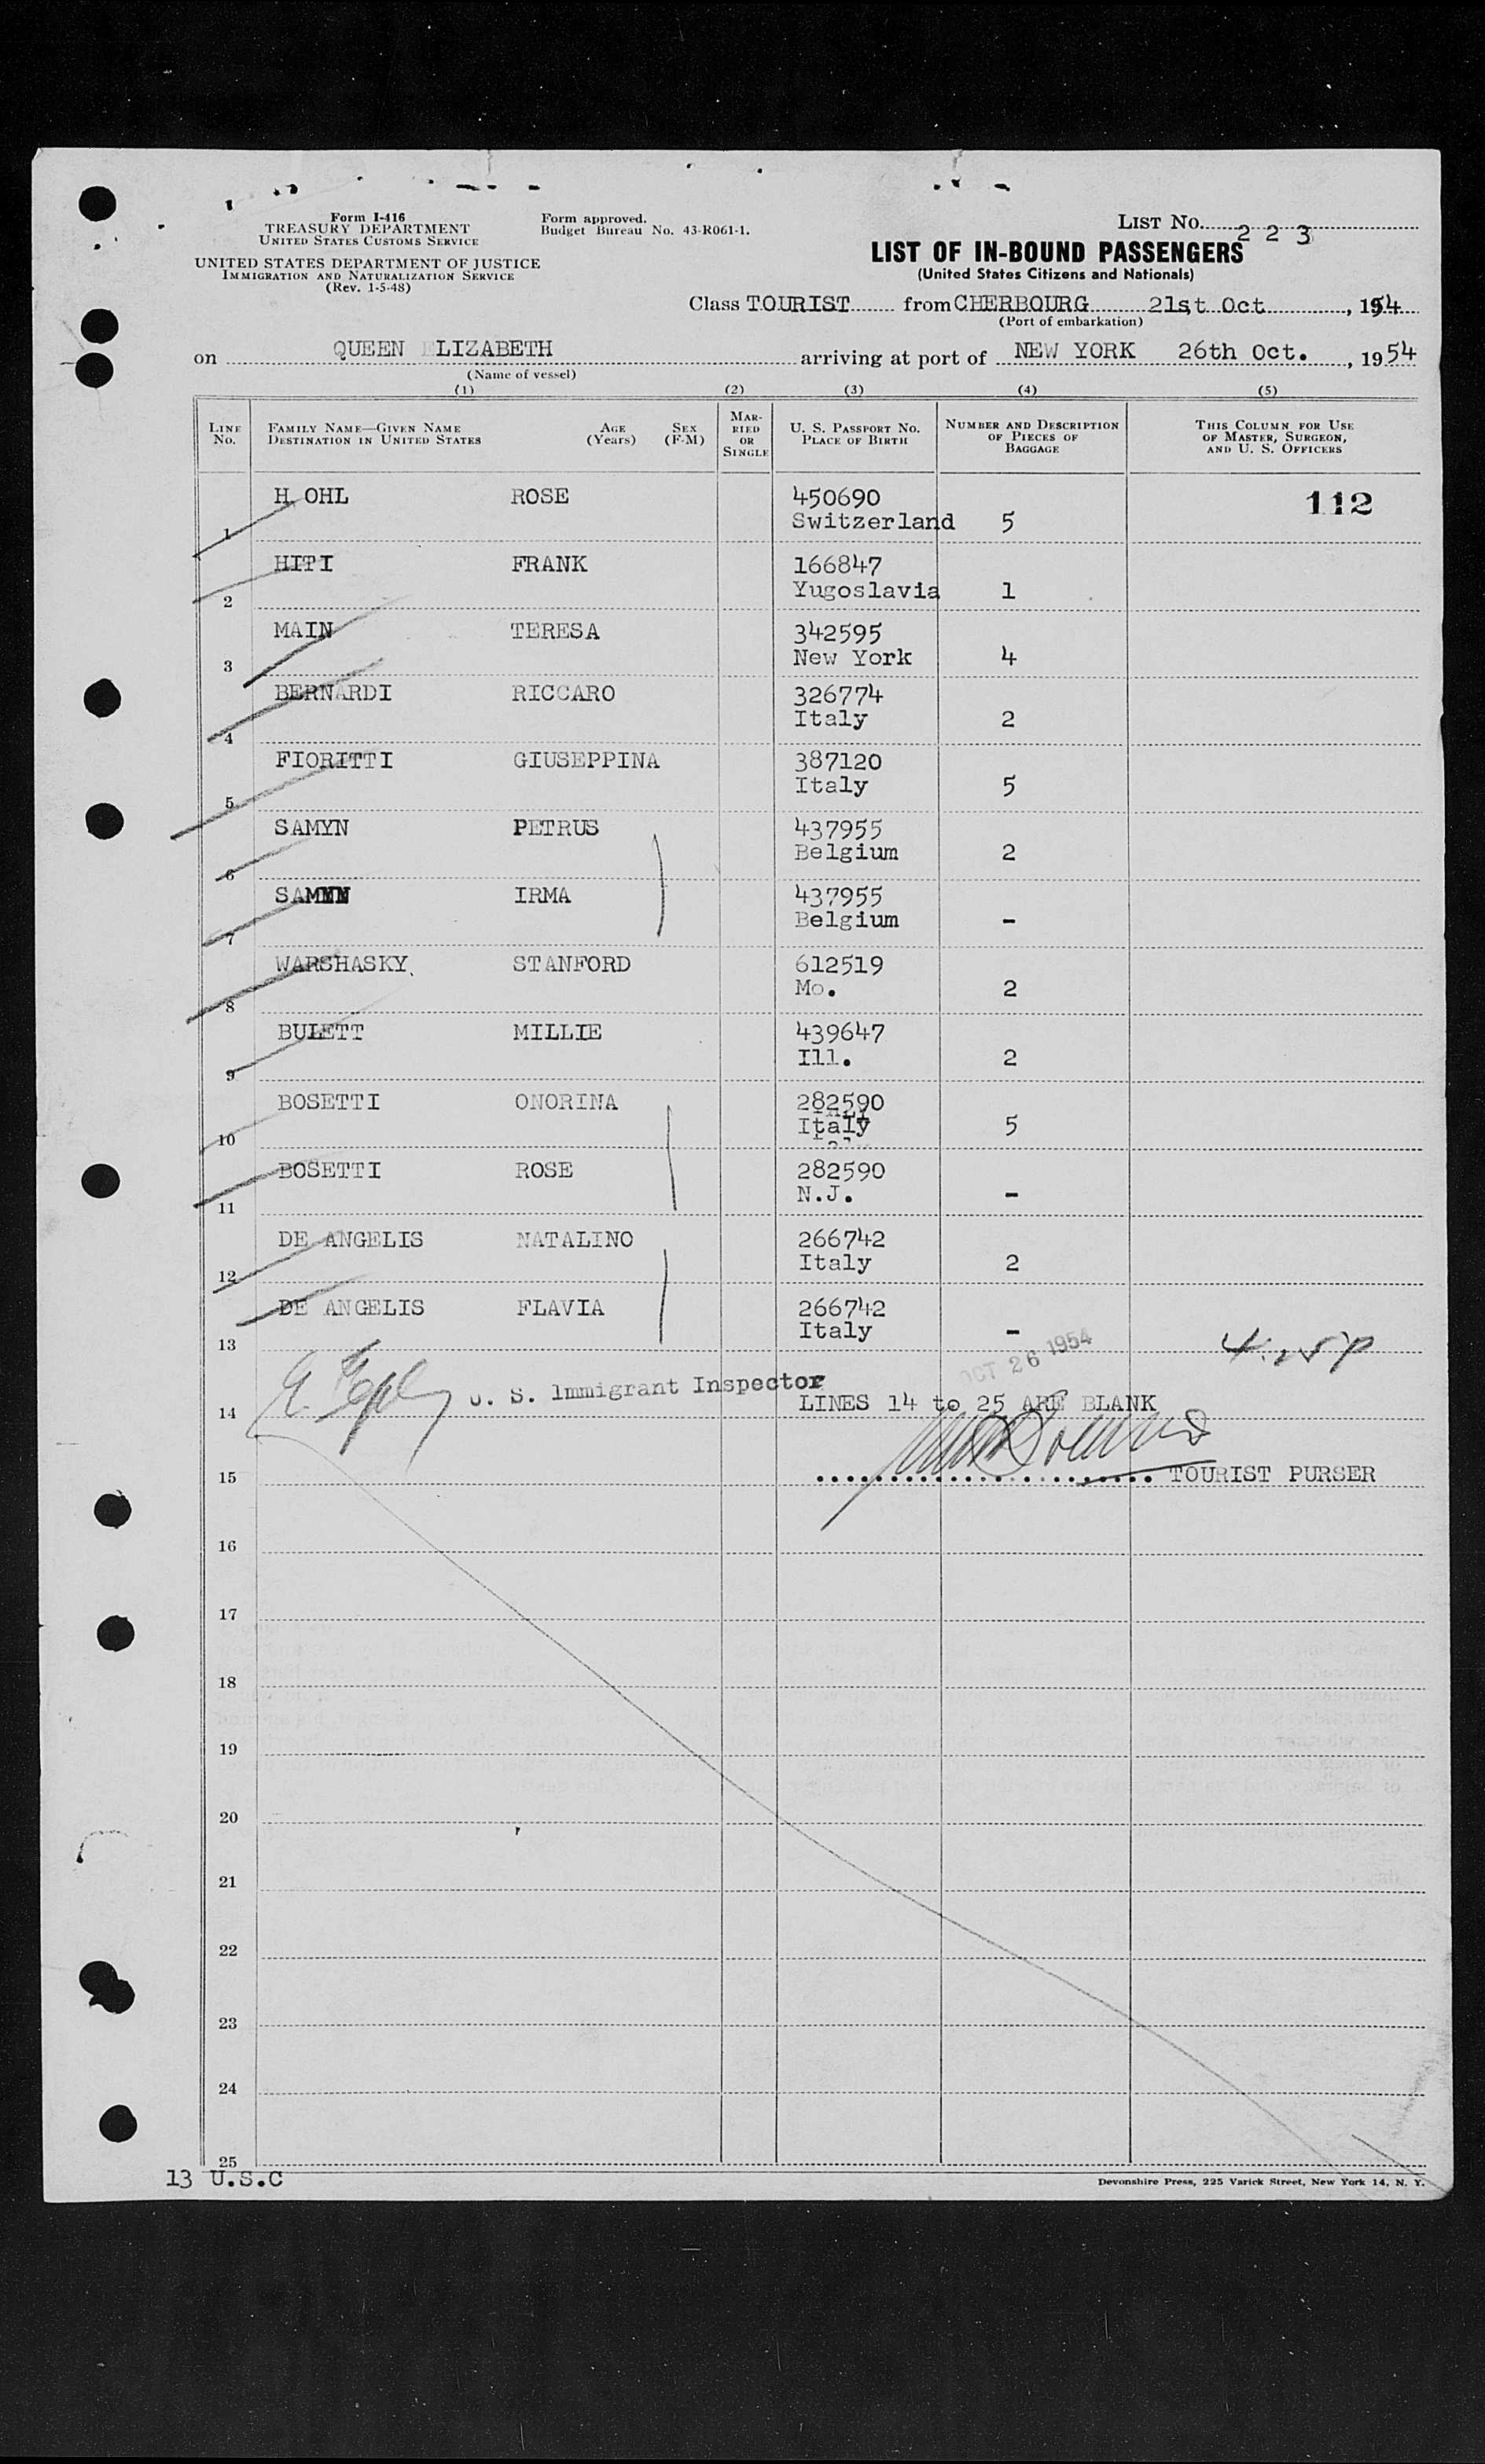 Form I-416
TREASURY DEPARTMENT
UNITED STATES CUSTOMS SERVICE
UNITED STATES DEPARTMENT OF JUSTICE
IMMIGRATION AND NATURALIZATION SERVICE
(Rev. 1-5-48)
Form approved.
Budget Bureau No. 43-R061-1.
LIST NO. 223
LIST OF IN-BOUND PASSENGERS
(United States Citizens and Nationals)
Class TOURIST from CHERBOURG 21st Oct , 1954
(Port of embarkation)
on QUEEN ELIZABETH arriving at port of NEW YORK 26th Oct. , 1954
(Name of vessel)
(1) (2) (3) (4) (5)
LINE NO. FAMILY NAME—GIVEN NAME DESTINATION IN UNITED STATES AGE (Years) SEX (F-M) MARRIED OR SINGLE U. S. PASSPORT NO. PLACE OF BIRTH NUMBER AND DESCRIPTION OF PIECES OF BAGGAGE THIS COLUMN FOR USE OF MASTER, SURGEON, AND U. S. OFFICERS
H OHL ROSE 450690 112
1 Switzerland 5
HITI FRANK 166847
2 Yugoslavia 1
MAIN TERESA 342595
3 New York 4
BERNARDI RICCARO 326774
4 Italy 2
FIORITTI GIUSEPPINA 387120
5 Italy 5
SAMYN PETRUS 437955
6 Belgium 2
SAMYN IRMA 437955
7 Belgium -
WARSHASKY STANFORD 612519
8 Mo. 2
BULETT MILLIE 439647
9 Ill. 2
BOSETTI ONORINA 282590
10 Italy 5
BOSETTI ROSE 282590
11 N.J. -
DE ANGELIS NATALINO 266742
12 Italy 2
DE ANGELIS FLAVIA 266742
13 Italy -
OCT 26 1954
U. S. Immigrant Inspector
14 LINES 14 to 25 ARE BLANK
15 TOURIST PURSER
16
17
18
19
20
21
22
23
24
25
13 U.S.C
Devonshire Press, 225 Varick Street, New York 14, N. Y.